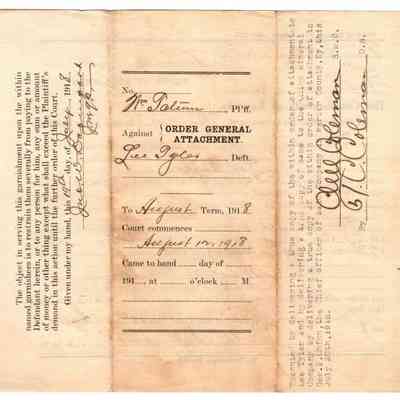 The object in serving this garnishment upon the within
named garnishees is to restrain them severally from paying to the
Defendant herein, or to any person for him, any sum or amount
of money or other thing except what shall exceed the Plaintiff's
demand in this action until the further order of this Court.
Given under my hand, this 19th day of July 1918
Judge
No.
Wm Tatum, Pl'ff.
Against
ORDER GENERAL
ATTACHMENT.
Lee Tyler Deft.
To August Term, 1918
Court commences
August 12, 1918
Came to hand day of
191 at o'clock M
Execute by delivering a true copy of the within order of attachment to
Lee Tyler and by delivering a true copy of same to the within mineral
Company by delivering a true copy of the within order of attachment to
the Chief officer of said County. Ky. this
July 20th, 1918.
Coleman S.M.C.
By T. C. Coleman D.S.